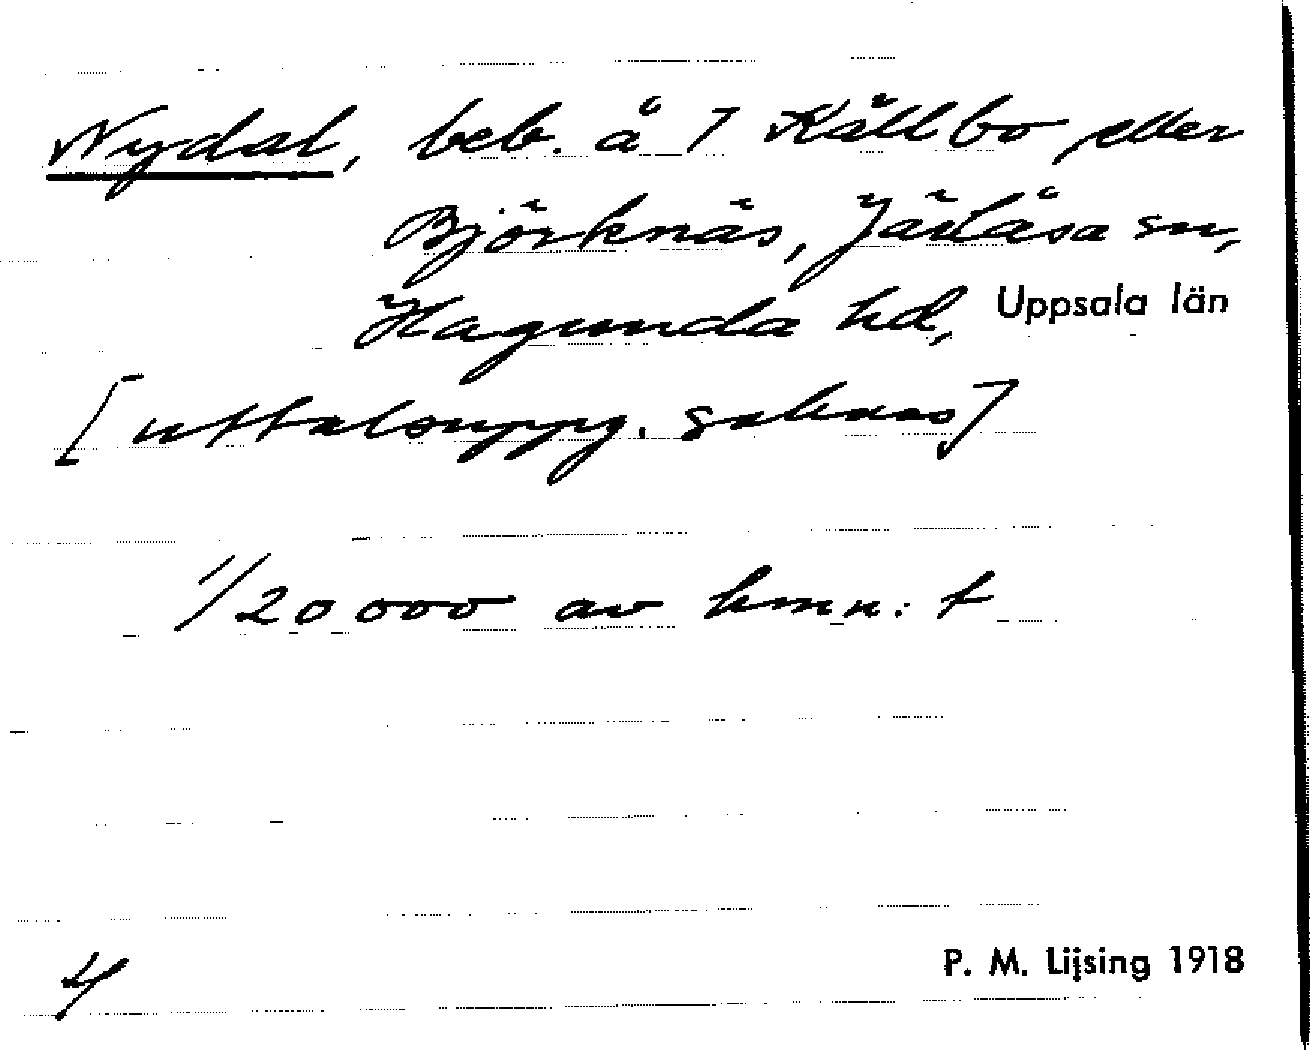 Nydal, beb. å 7 Källbo eller
Björknäs, Järlåsa sn,
Hagunda hd, Uppsala län
[uttalsuppg. saknas]
1/20 000 av hmn: t
4
P. M. Lijsing 1918